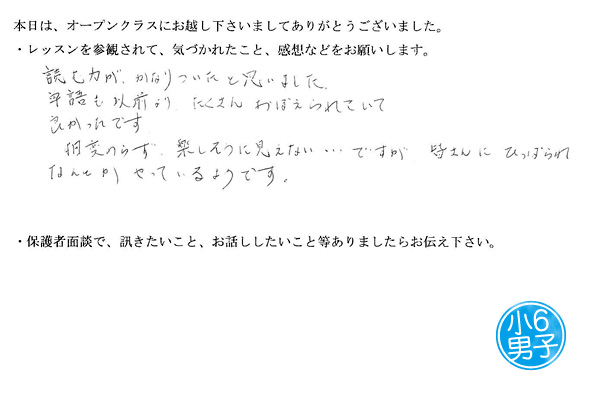 本日は、オープンクラスにお越し下さいましてありがとうございました。
・レッスンを参観されて、気づかれたこと、感想などをお願いします。
読む力が、かなりついたと思いました。
単語も以前より、たくさんおぼえられていて
良かったです。
相変わらず、楽しそうに見えない…ですが、皆さんにひっぱられ
なんとかやっているようです。
・保護者面談で、訊きたいこと、お話ししたいこと等ありましたらお伝え下さい。
小6
男子